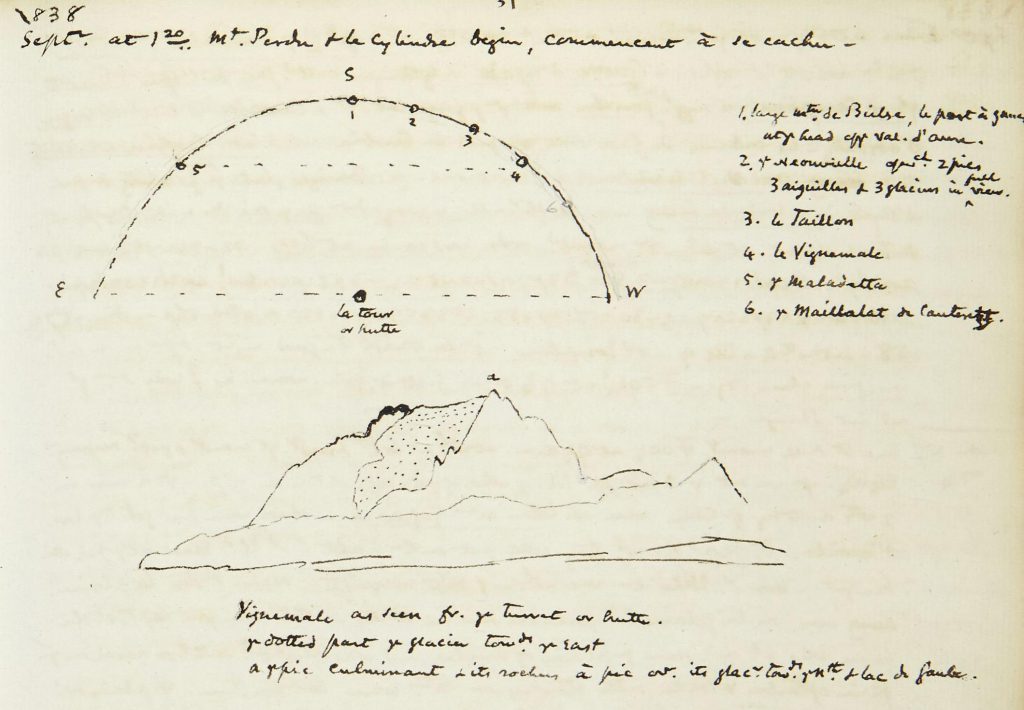 1838
31
Septr. at 1 20/.. Mt. Perdu & le Cylindre begin, commencent à se cacher –
S
1
2
3
4
5
6
E
W
la tour
or hutte
1. large mtn. de Bielsa, le port à gauche
at ye head opp val. d'aure.
2. ye Neouvielle 2 pics
3 aiguilles & 3 glaciers in full view.
3. le Taillon
4. le Vignemale
5. ye Maladetta
6. ye Maillabat de Cauterets.
a
Vignemale as seen fr. ye turret or hutte.
ye dotted part ye glacier towds. ye East
a ye pic culminant & its rochers à pic ov. its glacr. towds. ye Nth. & lac de Gaube.